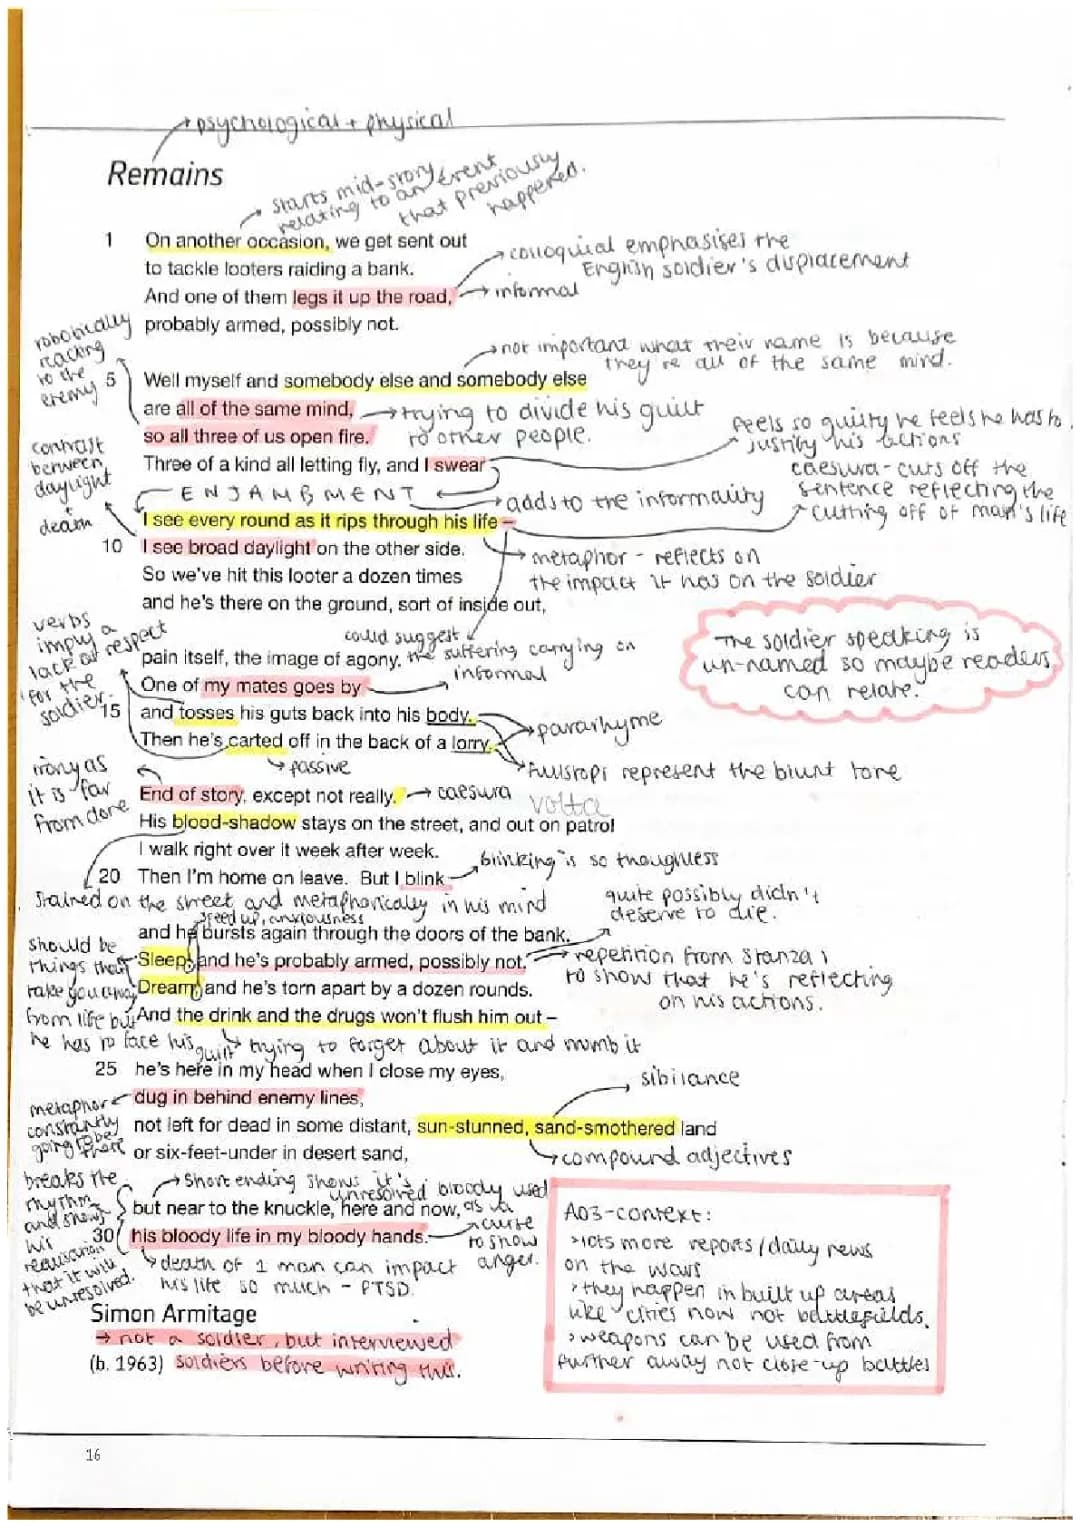 psychological + physical
Remains
starts mid-story
relating to an event
that previously
happened.
1 On another occasion, we get sent out
to tackle looters raiding a bank.
And one of them legs it up the road,
probably armed, possibly not.
colloquial emphasises the
English soldier's displacement
informal
robotically
reacting
to the
enemy
not important what their name is because
they're all of the same mind.
5 Well myself and somebody else and somebody else
are all of the same mind,
so all three of us open fire.
Three of a kind all letting fly, and I swear
trying to divide his guilt
to other people.
feels so guilty he feels he has to
justify his actions
contrast
between
daylight
+
death
ENJAMBMENT
adds to the informality
caesura - cuts off the
sentence reflecting the
cutting off of man's life
I see every round as it rips through his life –
10 I see broad daylight on the other side.
So we've hit this looter a dozen times
and he's there on the ground, sort of inside out,
metaphor - reflects on
the impact it has on the soldier
verbs
imply a
lack of respect
for the
soldier.
could suggest
the suffering carrying on
pain itself, the image of agony.
One of my mates goes by
15 and tosses his guts back into his body.
Then he's carted off in the back of a lorry.
informal
pararhyme
passive
fullstops represent the blunt tone
The soldier speaking is
un-named so maybe readers
can relate.
irony as
it is far
from done
End of story, except not really.
caesura
volta
His blood-shadow stays on the street, and out on patrol
I walk right over it week after week.
20 Then I'm home on leave. But I blink
blinking is so thoughtless
stained on the street and metaphorically in his mind
speed up, anxiousness
quite possibly didn't
deserve to die.
and he bursts again through the doors of the bank.
Sleep, and he's probably armed, possibly not.
Dream, and he's torn apart by a dozen rounds.
And the drink and the drugs won't flush him out –
should be
things that
take you away
from life but
he has to face his
guilt
repetition from stanza 1
to show that he's reflecting
on his actions.
trying to forget about it and numb it
25 he's here in my head when I close my eyes,
dug in behind enemy lines,
not left for dead in some distant, sun-stunned, sand-smothered land
or six-feet-under in desert sand,
sibilance
compound adjectives
metaphor
constantly
going to be
there
breaks the
rhythm
and shows
his
realisation
that it will
be unresolved.
short ending shows it's
unresolved
but near to the knuckle, here and now,
30 his bloody life in my bloody hands.
bloody used
as a
curse
to show
anger.
death of 1 man can impact
his life so much - PTSD.
Simon Armitage
not a soldier, but interviewed
(b. 1963) soldiers before writing this.
AO3-context:
lots more reports/daily news
on the wars
they happen in built up areas
like cities now not battlefields.
weapons can be used from
further away not close-up battles
16